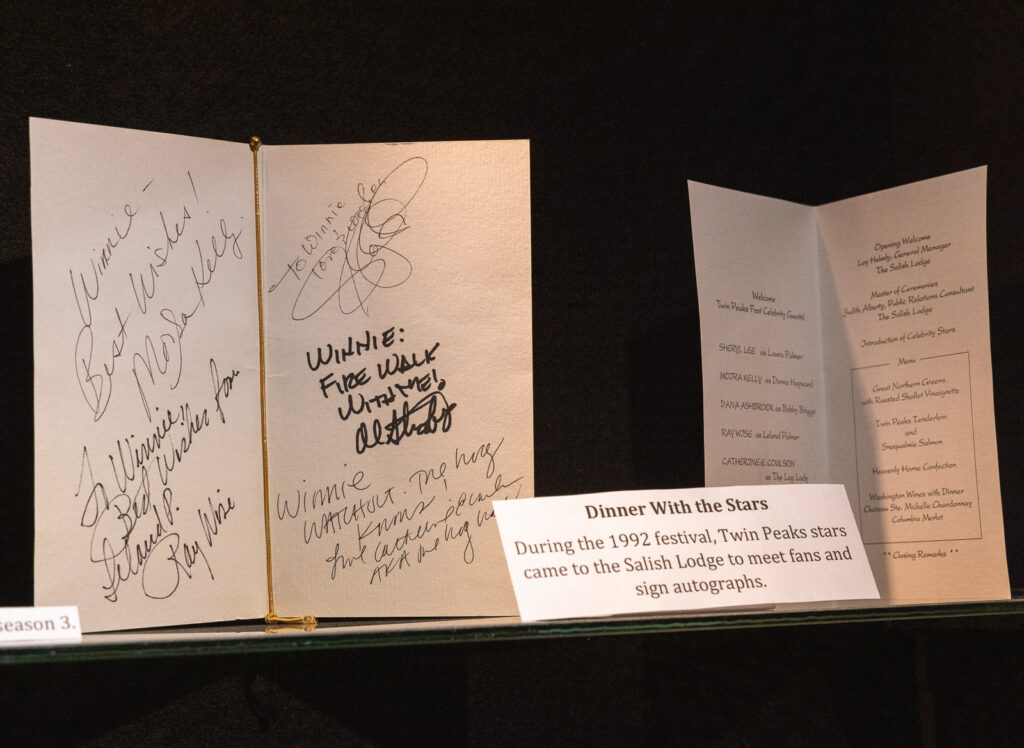 Winnie -
Best Wishes!
Moira Kelly
To Winnie,
Best Wishes from
Leland P.
Ray Wise
To Winnie
WINNIE:
FIRE WALK
WITH ME!
Winnie
WATCHOUT. The log
Knows,
Love Catherine E. Coulson
AKA the log
season 3.
Dinner With the Stars
During the 1992 festival, Twin Peaks stars
came to the Salish Lodge to meet fans and
sign autographs.
Welcome
Twin Peaks Fest Celebrity Guests!
SHERYL LEE as Laura Palmer
MOIRA KELLY as Donna Hayward
DANA ASHBROOK as Bobby Briggs
RAY WISE as Leland Palmer
CATHERINE E. COULSON
as The Log Lady
Opening Welcome
Loy Helmly, General Manager
The Salish Lodge
Master of Ceremonies
Judith Alberty, Public Relations Consultant
The Salish Lodge
Introduction of Celebrity Stars
Menu
Great Northern Greens
with Roasted Shallot Vinaigrette
Twin Peaks Tenderloin
and
Snoqualmie Salmon
Heavenly Home Confection
Washington Wines with Dinner
Chateau Ste. Michelle Chardonnay
Columbia Merlot
**Closing Remarks**